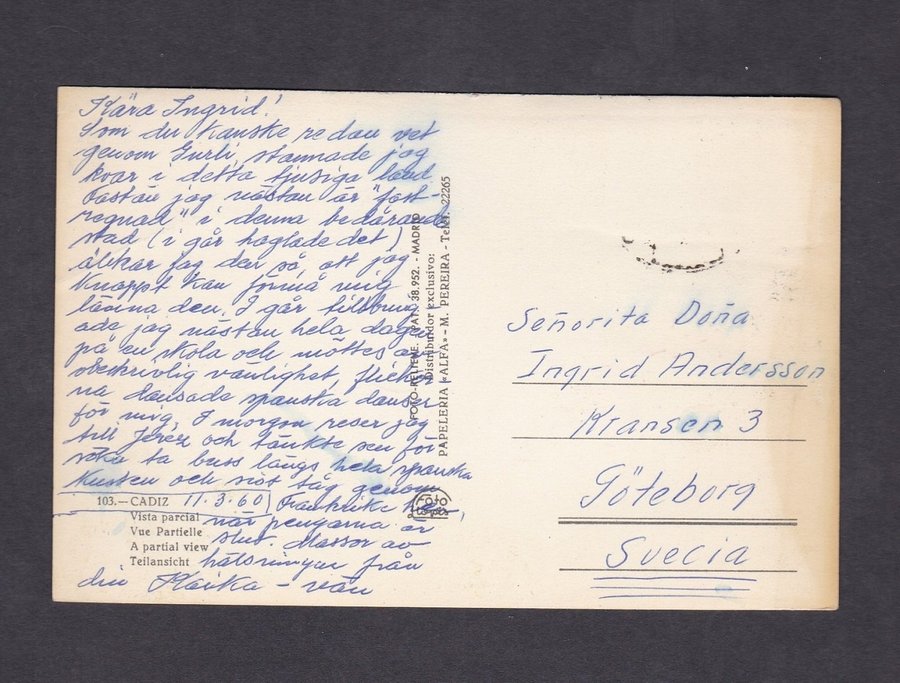 Kära Ingrid!
Som du kanske redan vet
genom Gurli, stannade jag
kvar i detta tjusiga land
Fastän jag nästan är "fast-
regnad" i denna bedårande
stad (i går haglade det)
älskar jag den så, att jag
knappt kan förmå mig
lämna den. I går tillbring-
ade jag nästan hela dagen
på en skola och möttes av
obeskrivlig vänlighet, flickor-
na dansade spanska danser
för mig. I morgon reser jag
till Jerez och tänkte sen för-
söka ta buss längs hela spanska
kusten och sist tåg genom
Frankrike hem,
när pengarna är
slut. Massor av
hälsningar från
din Kaika-vän
11.3.60
103.— CADIZ
Vista parcial
Vue Partielle
A partial view
Teilansicht
FOTO-RELIEVE. PAT. 38.952. - MADRID
Distribuidor exclusivo:
PAPELERIA «ALFA» - M. PEREIRA - Telef. 22265
FOTO
Señorita Doña
Ingrid Andersson
Kransen 3
Göteborg
Suecia